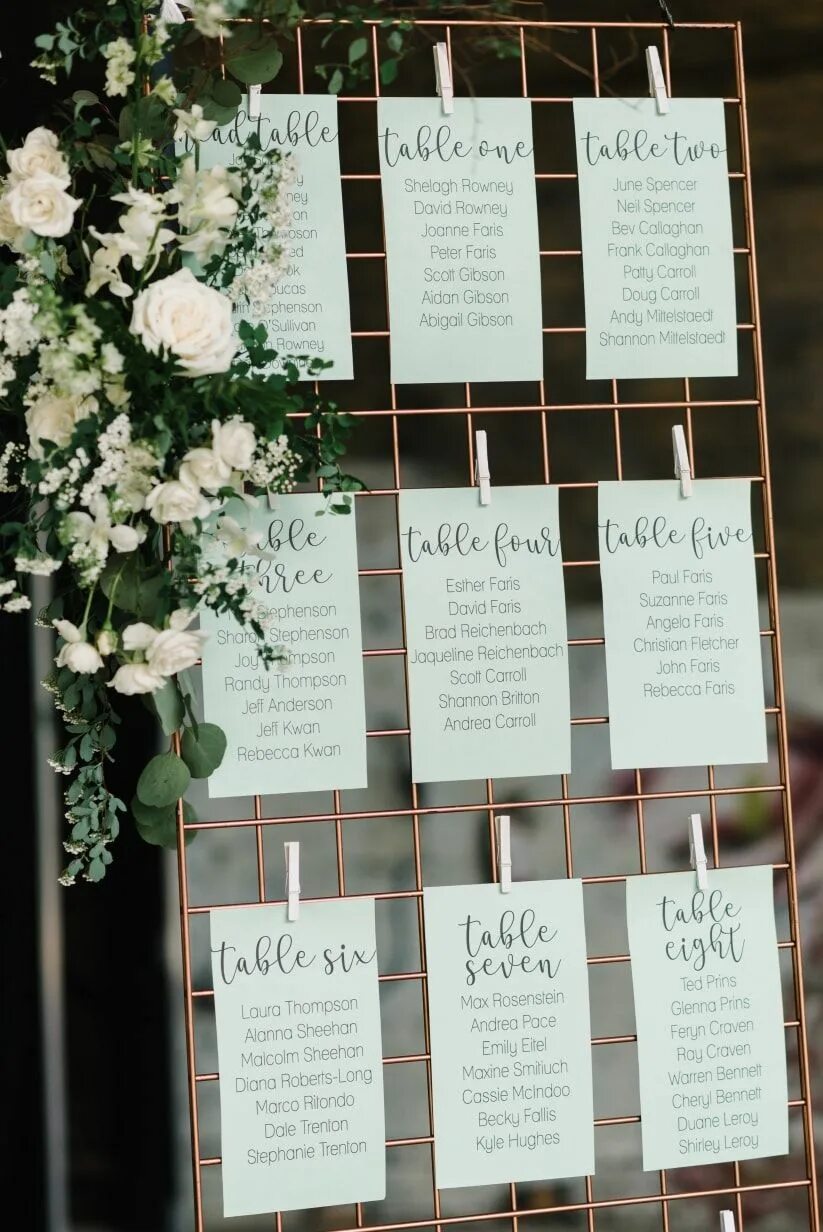 head table
Thompson
Stephenson
O'Sullivan
Rowney
table one
Shelagh Rowney
David Rowney
Joanne Faris
Peter Faris
Scott Gibson
Aidan Gibson
Abigail Gibson
table two
June Spencer
Neil Spencer
Bev Callaghan
Frank Callaghan
Patty Carroll
Doug Carroll
Andy Mittelstaedt
Shannon Mittelstaedt
table
three
Stephenson
Sharon Stephenson
Joy Thompson
Randy Thompson
Jeff Anderson
Jeff Kwan
Rebecca Kwan
table four
Esther Faris
David Faris
Brad Reichenbach
Jaqueline Reichenbach
Scott Carroll
Shannon Britton
Andrea Carroll
table five
Paul Faris
Suzanne Faris
Angela Faris
Christian Fletcher
John Faris
Rebecca Faris
table six
Laura Thompson
Alanna Sheehan
Malcolm Sheehan
Diana Roberts-Long
Marco Ritondo
Dale Trenton
Stephanie Trenton
table
seven
Max Rosenstein
Andrea Pace
Emily Eitel
Maxine Smitiuch
Cassie McIndoo
Becky Fallis
Kyle Hughes
table
eight
Ted Prins
Glenna Prins
Feryn Craven
Ray Craven
Warren Bennett
Cheryl Bennett
Duane Leroy
Shirley Leroy